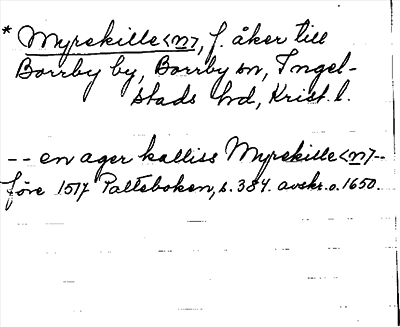 * Myrekille<n>, f. åker till
Borrby by, Borrby sn, Ingel-
stads hd, Krist. l.
-- en ager kalliss Myrekille<n>--
före 1517 Palteboken, s. 384. avskr. o. 1650.